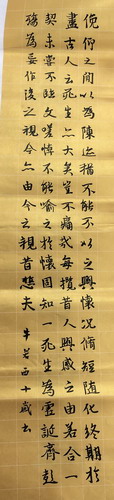 俛仰之間以為陳迹猶不能不以之興懷況脩短隨化終期於
盡古人云死生亦大矣豈不痛哉每攬昔人興感之由若合一
契未嘗不臨文嗟悼不能喻之於懷固知一死生為虛誕齊彭
殤為妄作後之視今亦由今之視昔悲夫 十歲書